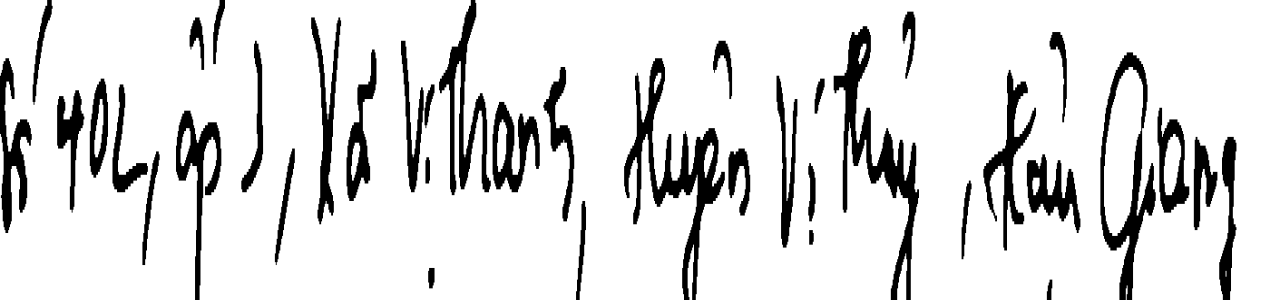 Số 402, ấp 3, Xã Vị Thắng, Huyện Vị Thủy, Hậu Giang